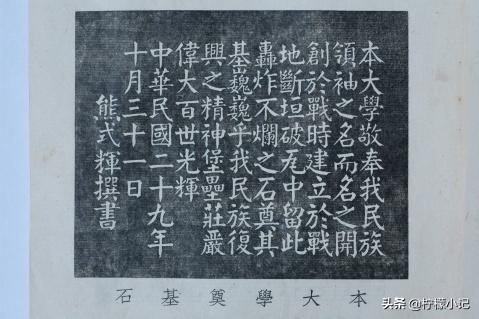 本大學敬奉我民族
領袖之名而名之開
創於戰時建立於戰
地斷垣破瓦中留此
轟炸不爛之石奠其
基巍巍乎我民族復
興之精神堡壘莊嚴
偉大百世光輝
中華民國二十九年
十月三十一日
熊式輝撰書
本大學奠基石
头条 @柠檬小记